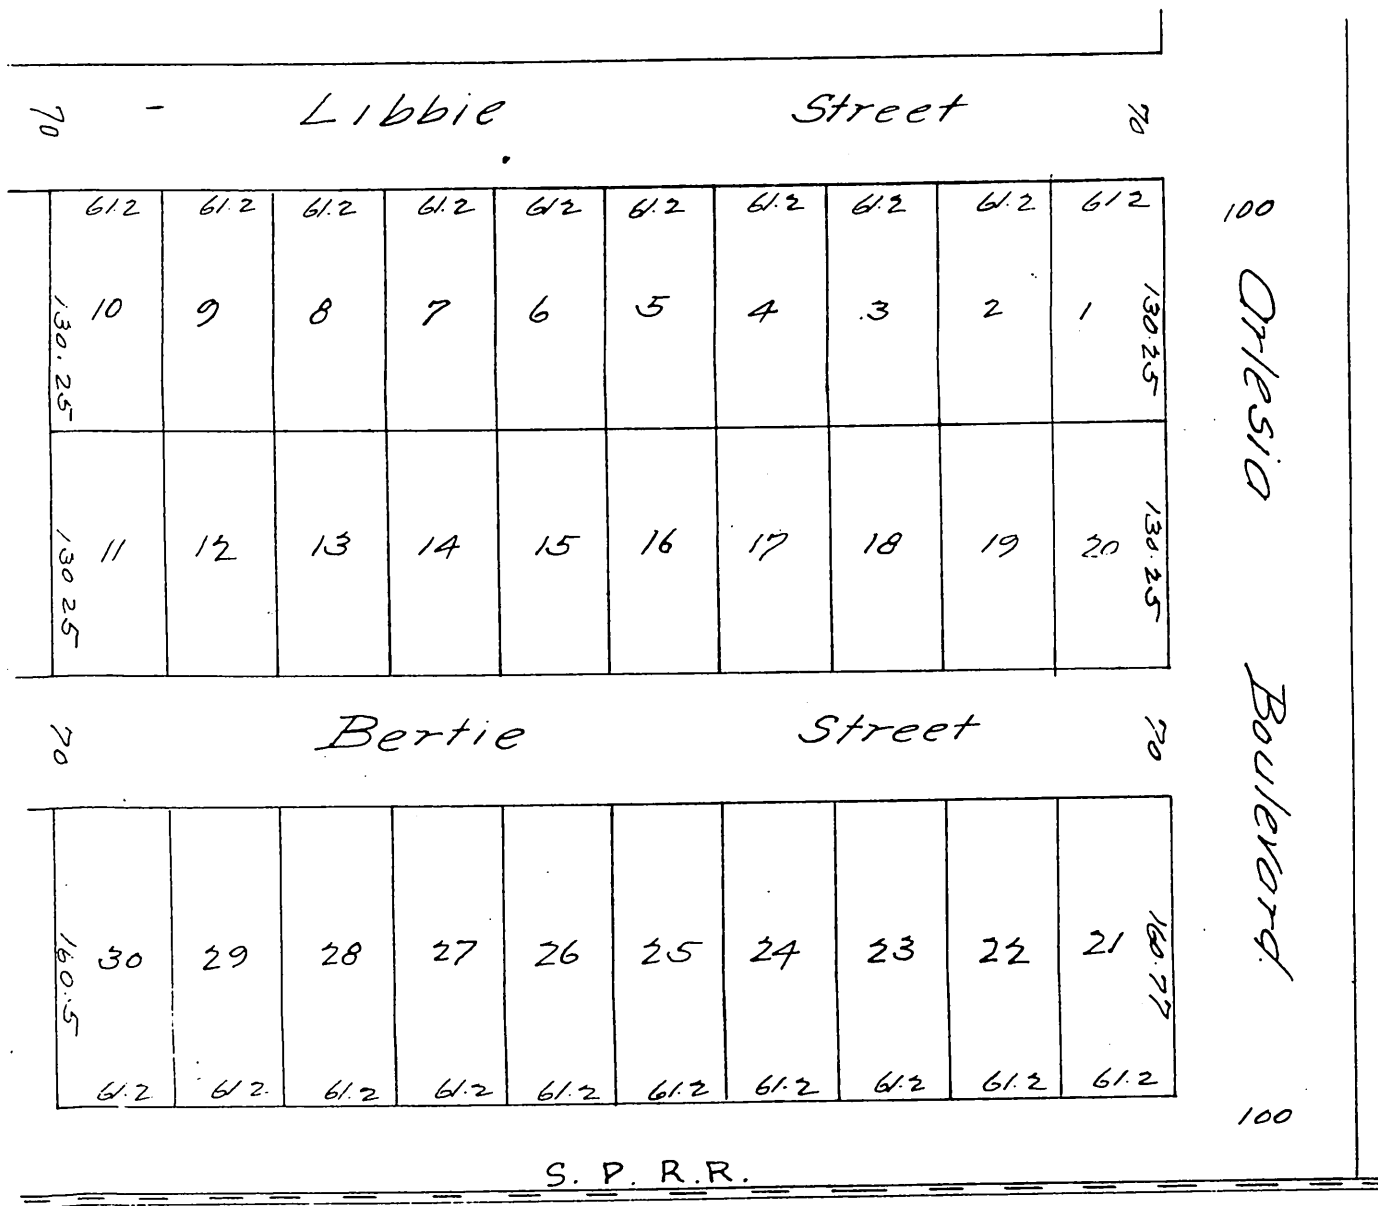 70 - Libbie Street 70
61.2 61.2 61.2 61.2 612 61.2 61.2 61.2 61.2 612
100
130.25 10 9 8 7 6 5 4 3 2 1 130.25
Orlesia Boulevard
130 25 11 12 13 14 15 16 17 18 19 20 130.25
70 Bertie Street 70
160.5 30 29 28 27 26 25 24 23 22 21 160.77
61.2 61 2. 61.2 61.2 61.2 61.2 61.2 61.2 61.2 61.2
100
S. P. R.R.